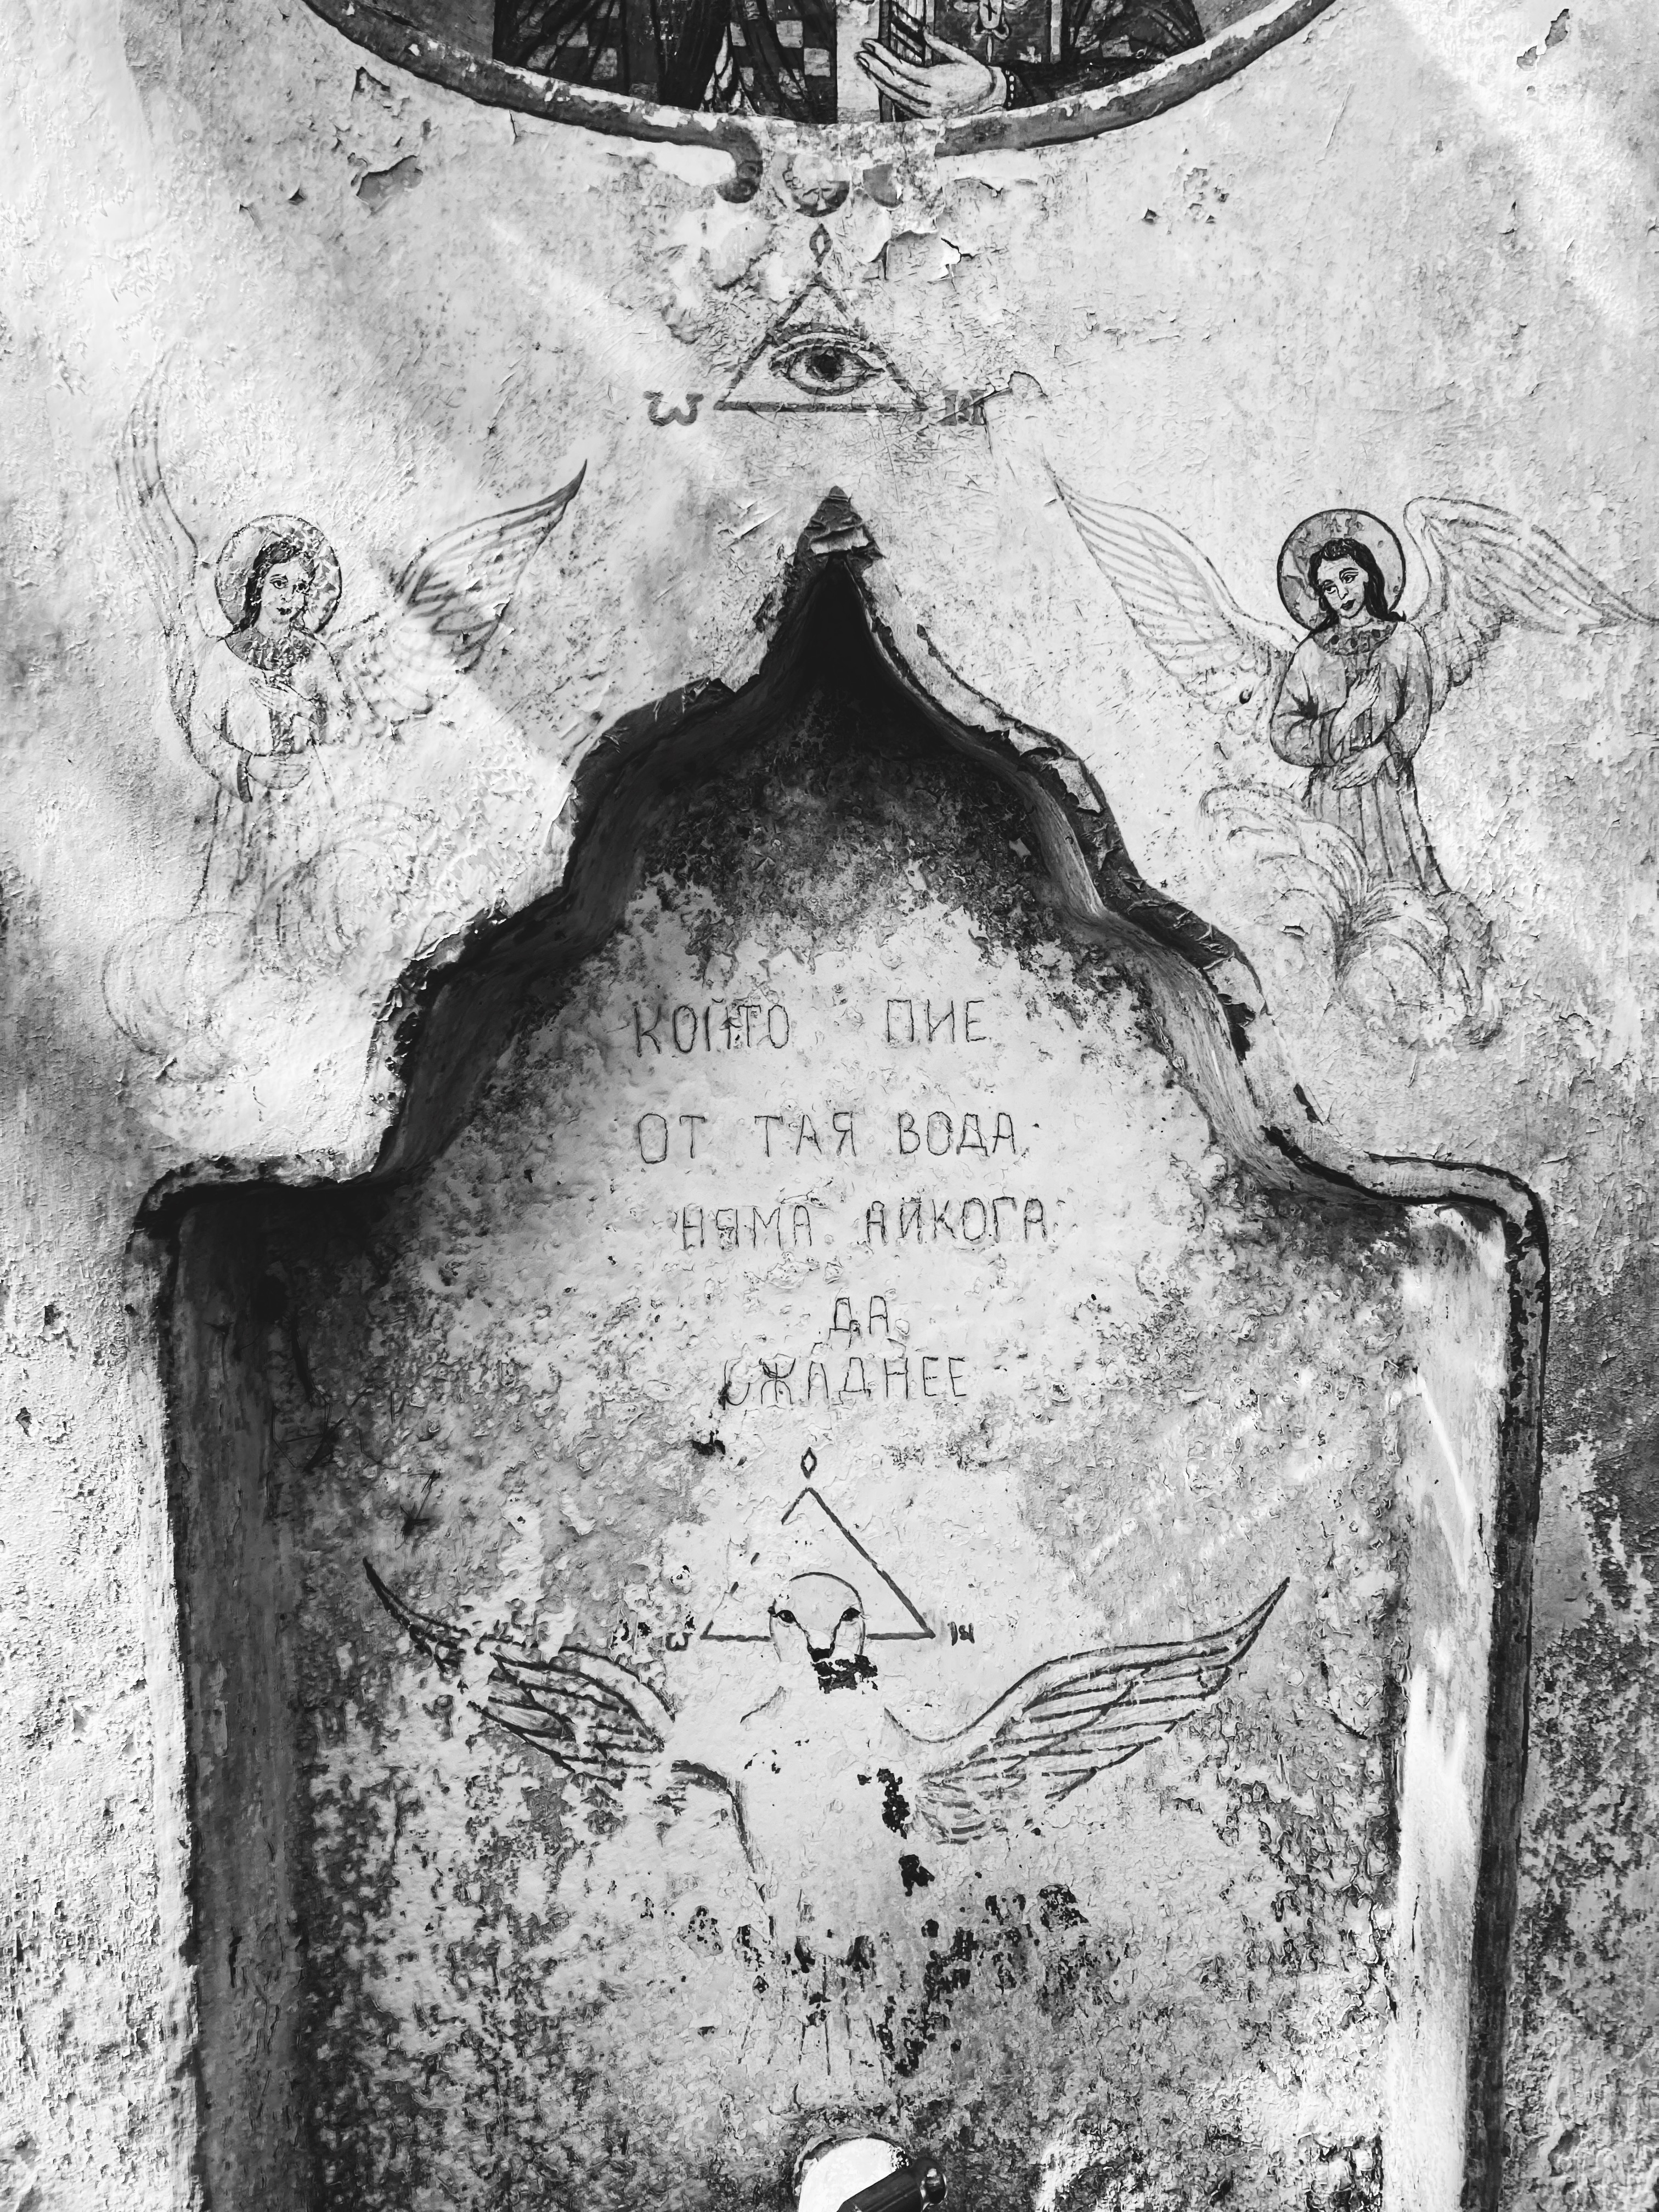 Ѡ Н
КОЙТО ПИЕ
ОТ ТАЯ ВОДА
НЯМА АЙКОГА
ДА
ОЖАДНЕЕ